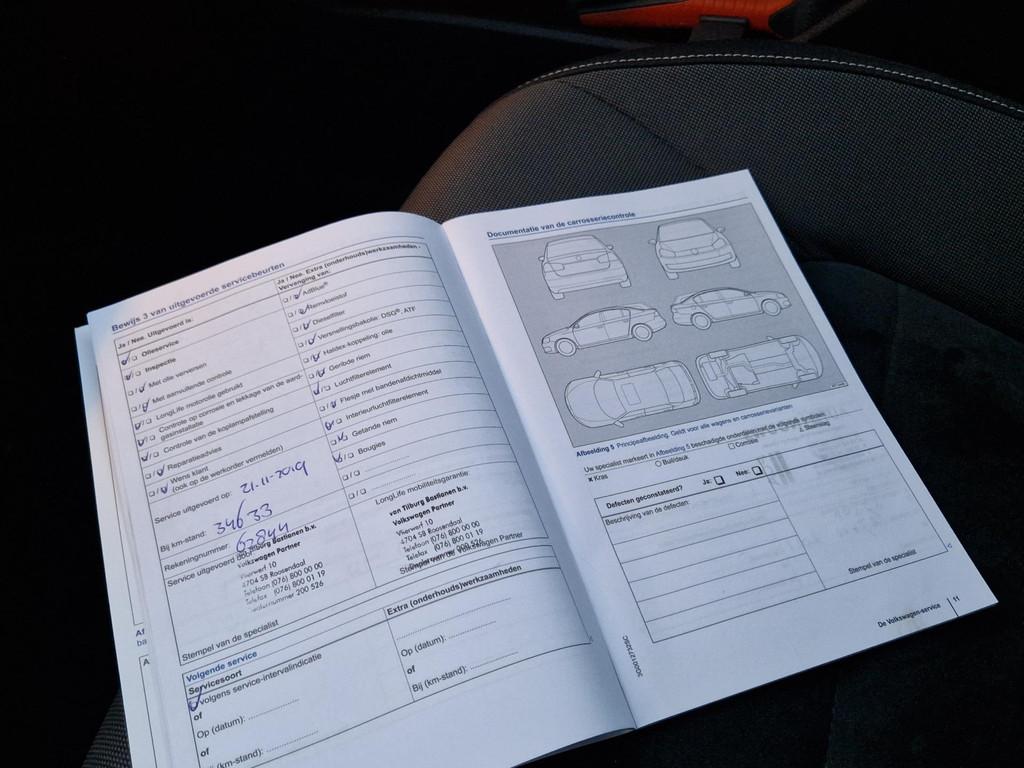 Bewijs 3 van uitgevoerde servicebeurten
Ja / Nee. Uitgevoerd is:
Olieservice
Inspectie
Met olie verversen
Met aanvullende controle
LongLife motorolie gebruikt
Controle op corrosie en lekkage van de aard-
gasinstallatie
Controle van de koplampafstelling
Reparatieadvies
Wens klant
(ook op de werkorder vermelden)
Service uitgevoerd op: 21-11-2019
Bij km-stand: 34633
Rekeningnummer: 62844
Service uitgevoerd door:
Tilburg Bastianen b.v.
Volkswagen Partner
Vierwerf 10
4704 SB Roosendaal
Telefoon (076) 800 00 00
Telefax (076) 800 01 19
200 526
Stempel van de specialist
Ja / Nee. Extra (onderhouds)werkzaamheden -
Vervanging van:
AdBlue®
Remvloeistof
Dieselfilter
Versnellingsbakolie: DSG®, ATF
Haldex-koppeling: olie
Geribde riem
Luchtfilterelement
Flesje met bandenafdichtmiddel
Interieurluchtfilterelement
Getande riem
Bougies
LongLife mobiliteitsgarantie:
van Tilburg Bastianen b.v.
Volkswagen Partner
Vierwerf 10
4704 SB Roosendaal
Telefoon (076) 800 00 00
Telefax (076) 800 01 19
200 526
Stempel van de Volkswagen Partner
Volgende service
Servicesoort
volgens service-intervalindicatie
of
Op (datum):
of
(km-stand):
Extra (onderhouds)werkzaamheden
Op (datum):
of
Bij (km-stand):
Documentatie van de carrosseriecontrole
Afbeelding 5 Principeafbeelding. Geldt voor alle wagens en carrosserievarianten
Uw specialist markeert in Afbeelding 5 beschadigde onderdelen met de volgende symbolen
x Kras
○ Buil/deuk
□ Corrosie
△ Steenslag
Defecten geconstateerd? Ja: Nee:
Beschrijving van de defecten:
Stempel van de specialist
3G0012732SC
De Volkswagen-service 11